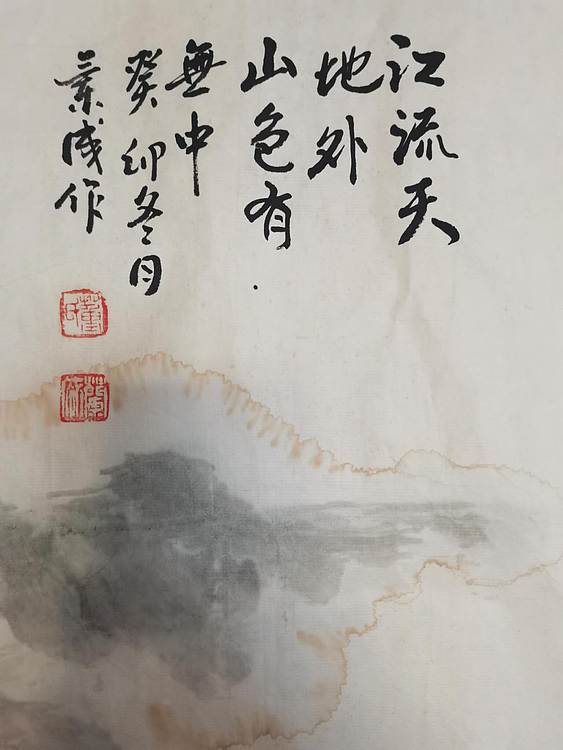 江流天
地外
山色有
無中
癸卯冬月
成作
董氏